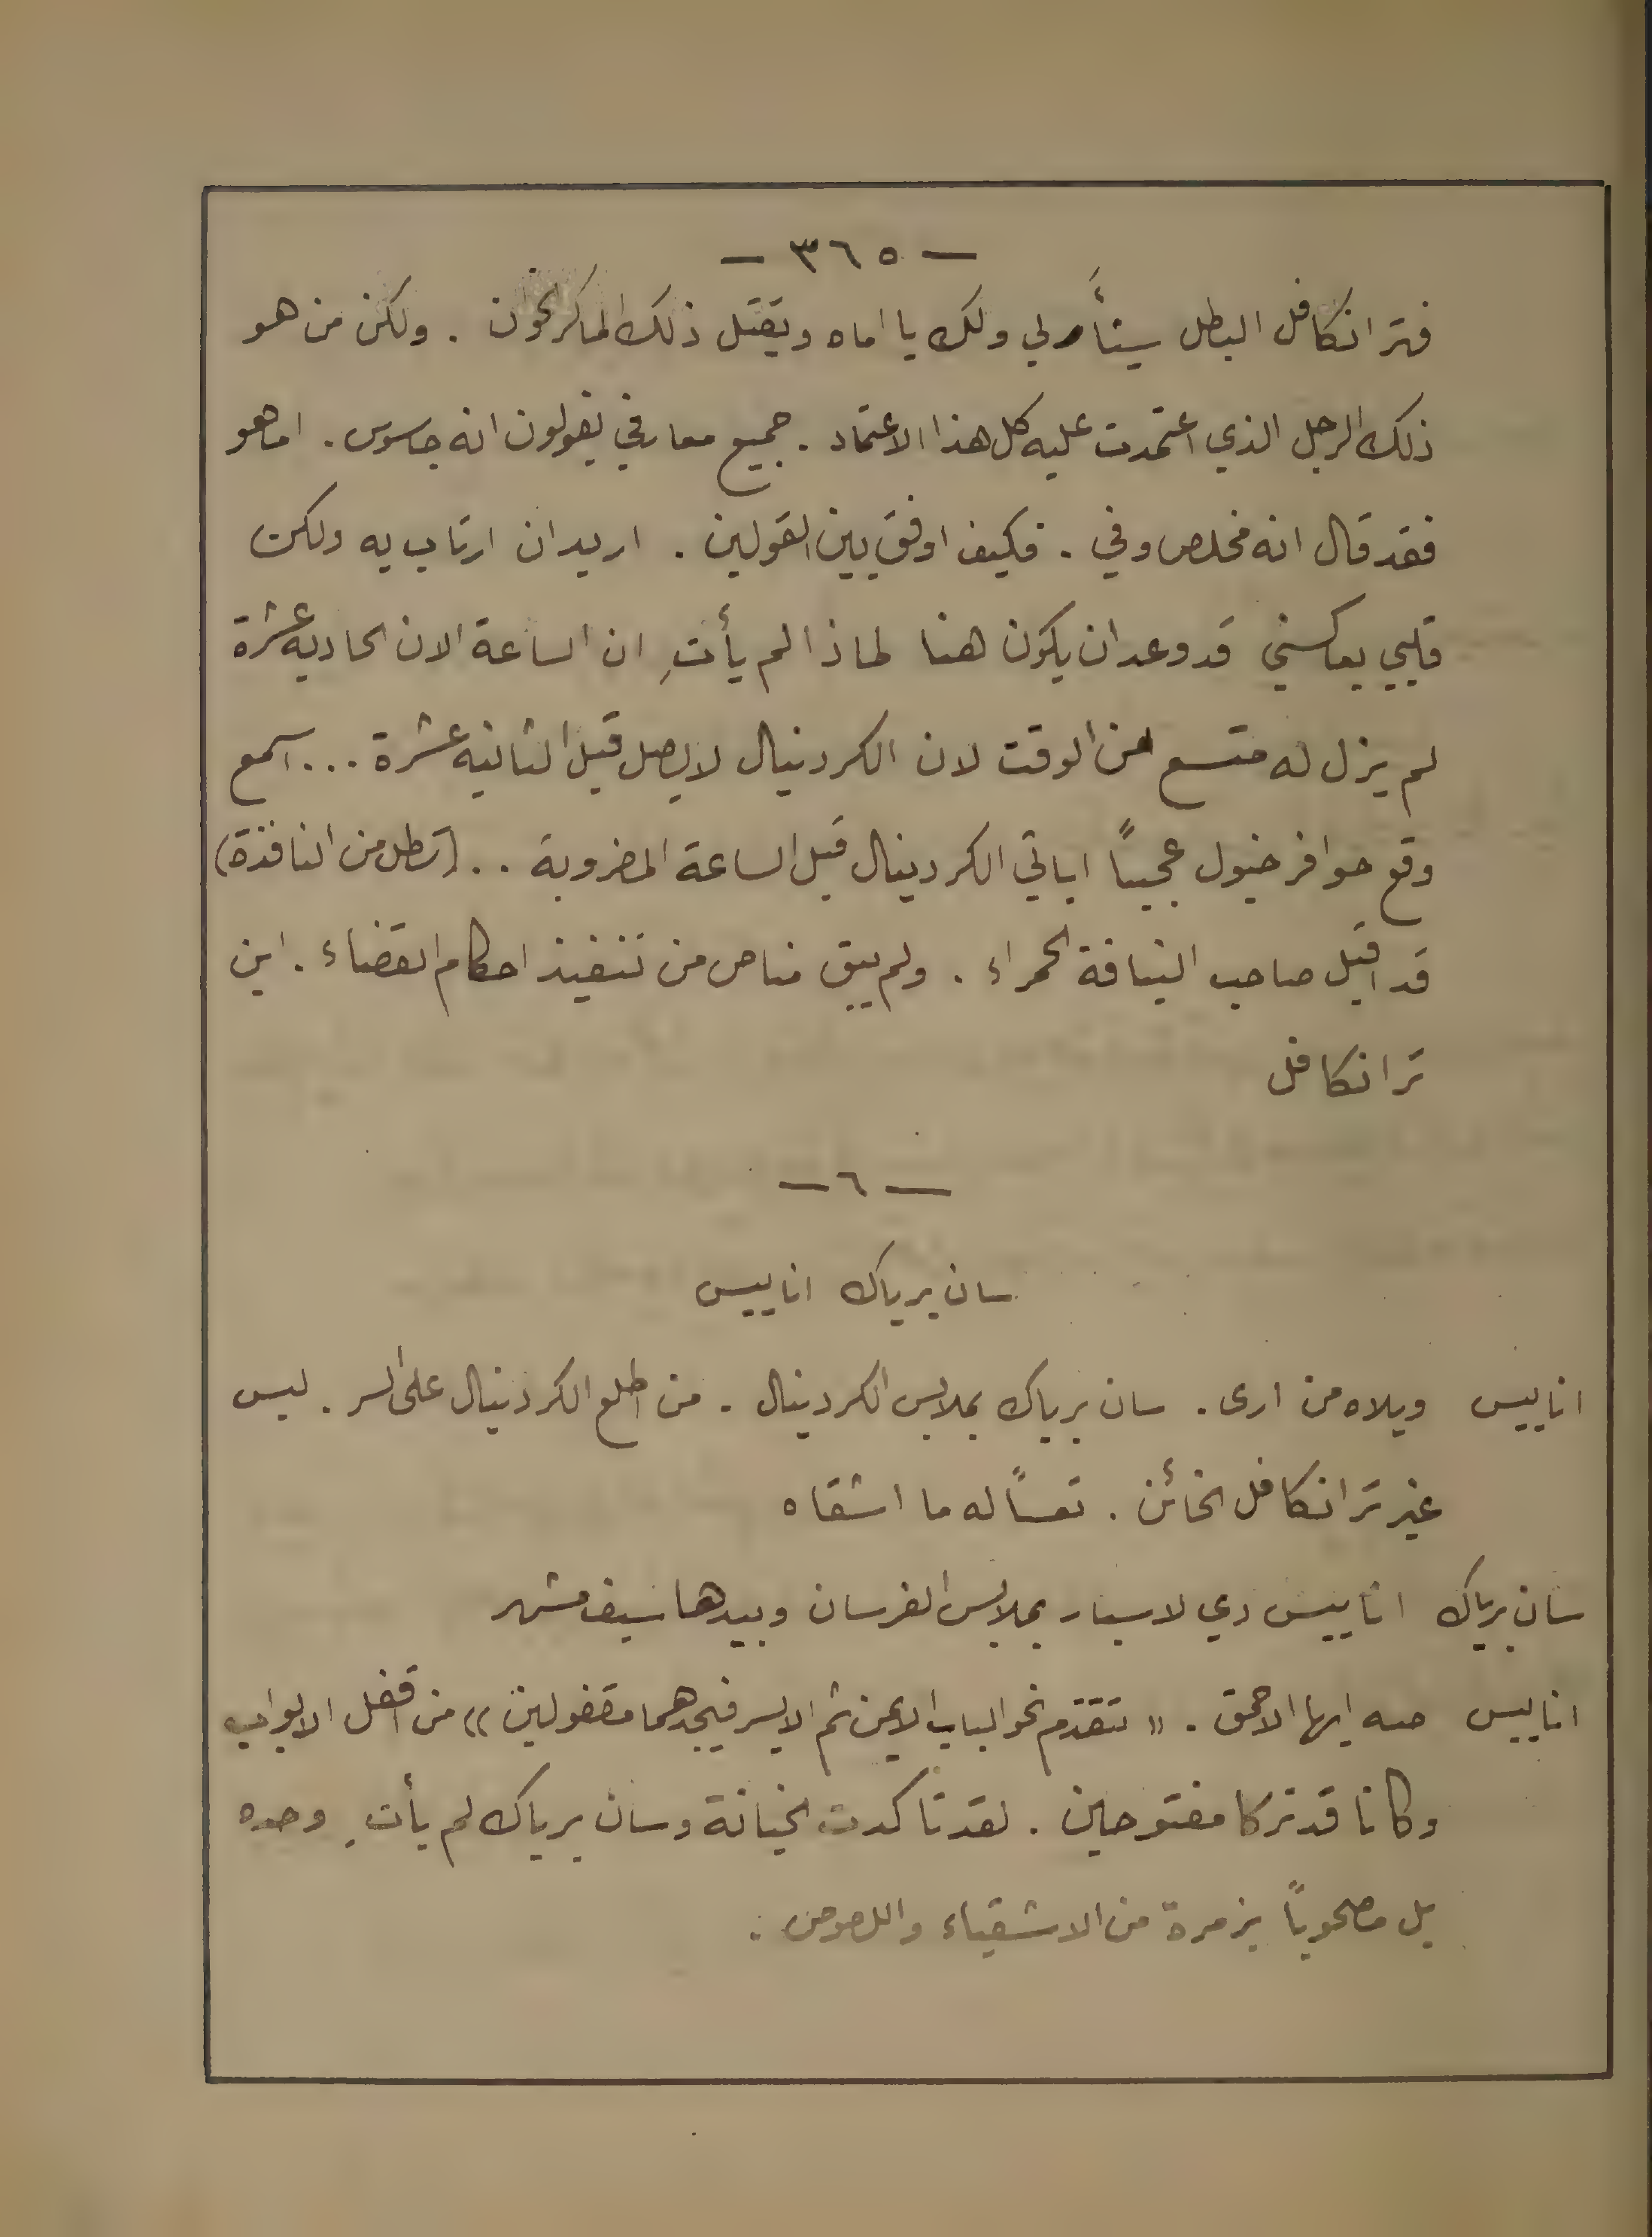 — ٣٦٥ —
فترانكافل البطل سيثأر لي ولك يا اماه ويقتل ذلك الماكر الخون . ولكن من هو
ذلك الرجل الذي اعتمدت عليه كل هذا الاعتماد . جميع معارفي يقولون انه جاسوس . اما هو
فقد قال انه مخلص وفي . فكيف اوفق بين القولين . اريد ان ارتاب به ولكن
قلبي يعاكسني قد وعد ان يكون هنا لماذا لم يأتِ ان الساعة الان الحاديه عشرة
لم يزل له متسع من الوقت لان الكردينال لا يصل قبل الثانيه عشرة ... اسمع
وقع حوافر خيول عجيباً اياتي الكردينال قبل الساعة المضروبة .. (تطل من النافذة)
قد اقبل صاحب القيافة الحمراء . ولم يبق مناص من تنفيذ احكام القضاء . اين
ترانكافل
— ٦ —
سان برياك اناييس
اناييس ويلاه من ارى . سان برياك بملابس الكردينال . من اطلع الكردينال على السر . ليس
غير ترانكافل الخائن . تعساً له ما اشقاه
سان برياك اناييس دي لاسبار بملابس الفرسان وبيدها سيف مشهر
اناييس صه ايها الاحمق . « تتقدم نحو الباب الايمن ثم الايسر فيجدهما مقفولين » من اقفل الابواب
وكانا قد تركا مفتوحين . لقد تاكدت الخيانة وسان برياك لم يأتِ وحده
بل مصحوباً بزمرة من الاشقياء واللصوص .